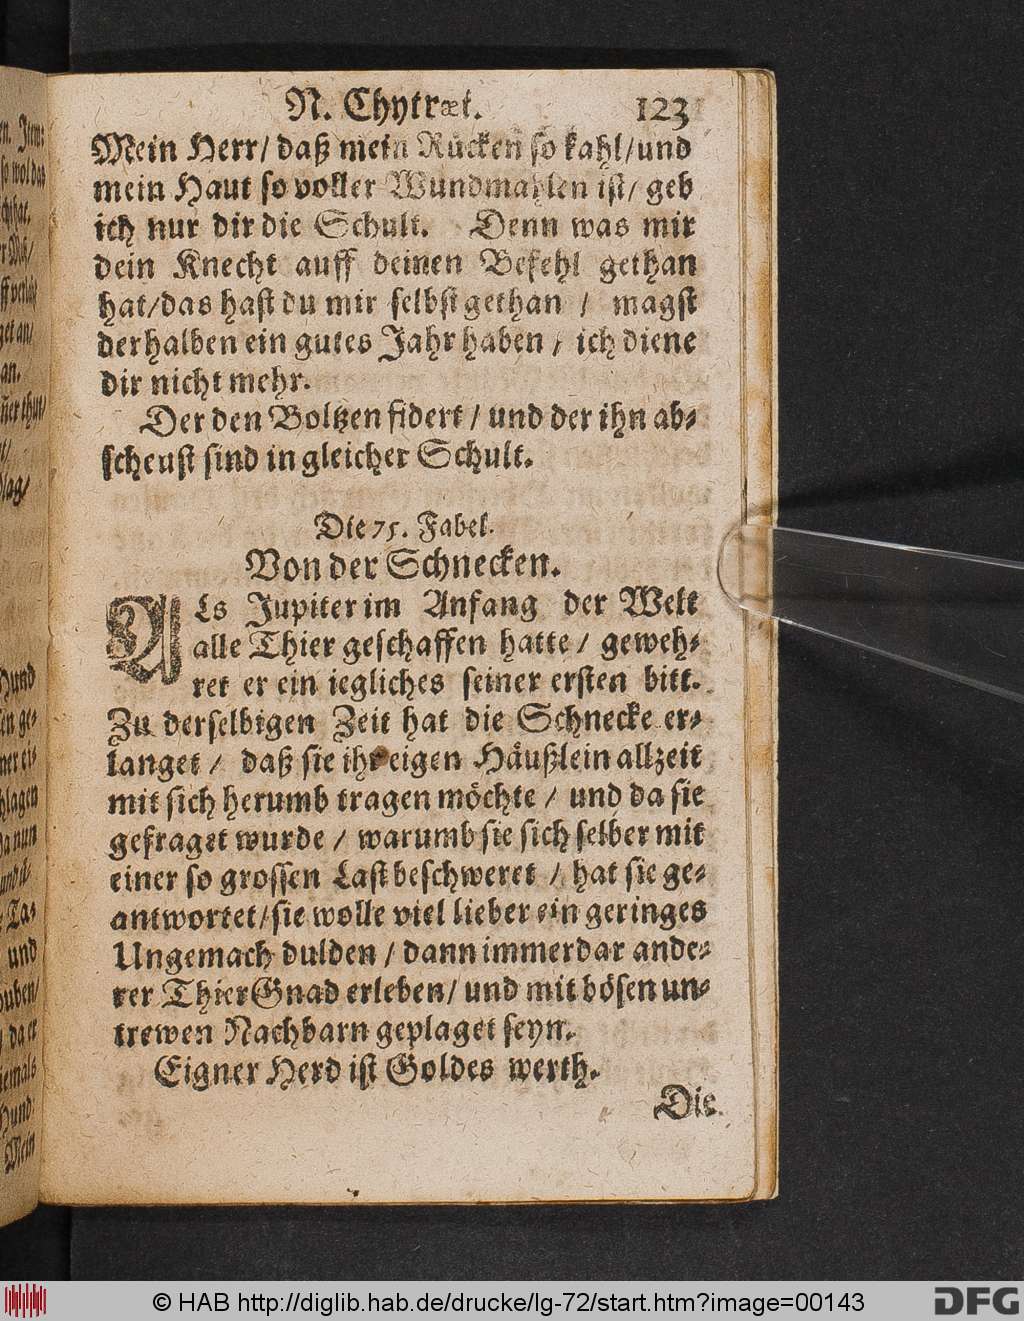 N. Chytræt. 123
Mein Herr/ daß mein Rücken so kahl/und
mein Haut so voller Wundmahlen ist/ geb
ich nur dir die Schult. Denn was mir
dein Knecht auff deinen Befehl gethan
hat/das hast du mir selbst gethan / magst
derhalben ein gutes Jahr haben / ich diene
dir nicht mehr.
Der den Boltzen fidert / und der ihn ab-
scheust sind in gleicher Schult.
Die 75. Fabel.
Von der Schnecken.
ALs Jupiter im Anfang der Welt
alle Thier geschaffen hatte / geweh-
ret er ein iegliches seiner ersten bitt.
Zu derselbigen Zeit hat die Schnecke er-
langet / daß sie ihr eigen Häußlein allzeit
mit sich herumb tragen möchte / und da sie
gefraget wurde / warumb sie sich selber mit
einer so grossen Last beschweret / hat sie ge-
antwortet/sie wolle viel lieber ein geringes
Ungemach dulden / dann immerdar ande-
rer Thier Gnad erleben/ und mit bösen un-
trewen Nachbarn geplaget seyn.
Eigner Herd ist Goldes werth.
Die
© HAB http://diglib.hab.de/drucke/lg-72/start.htm?image=00143
DFG